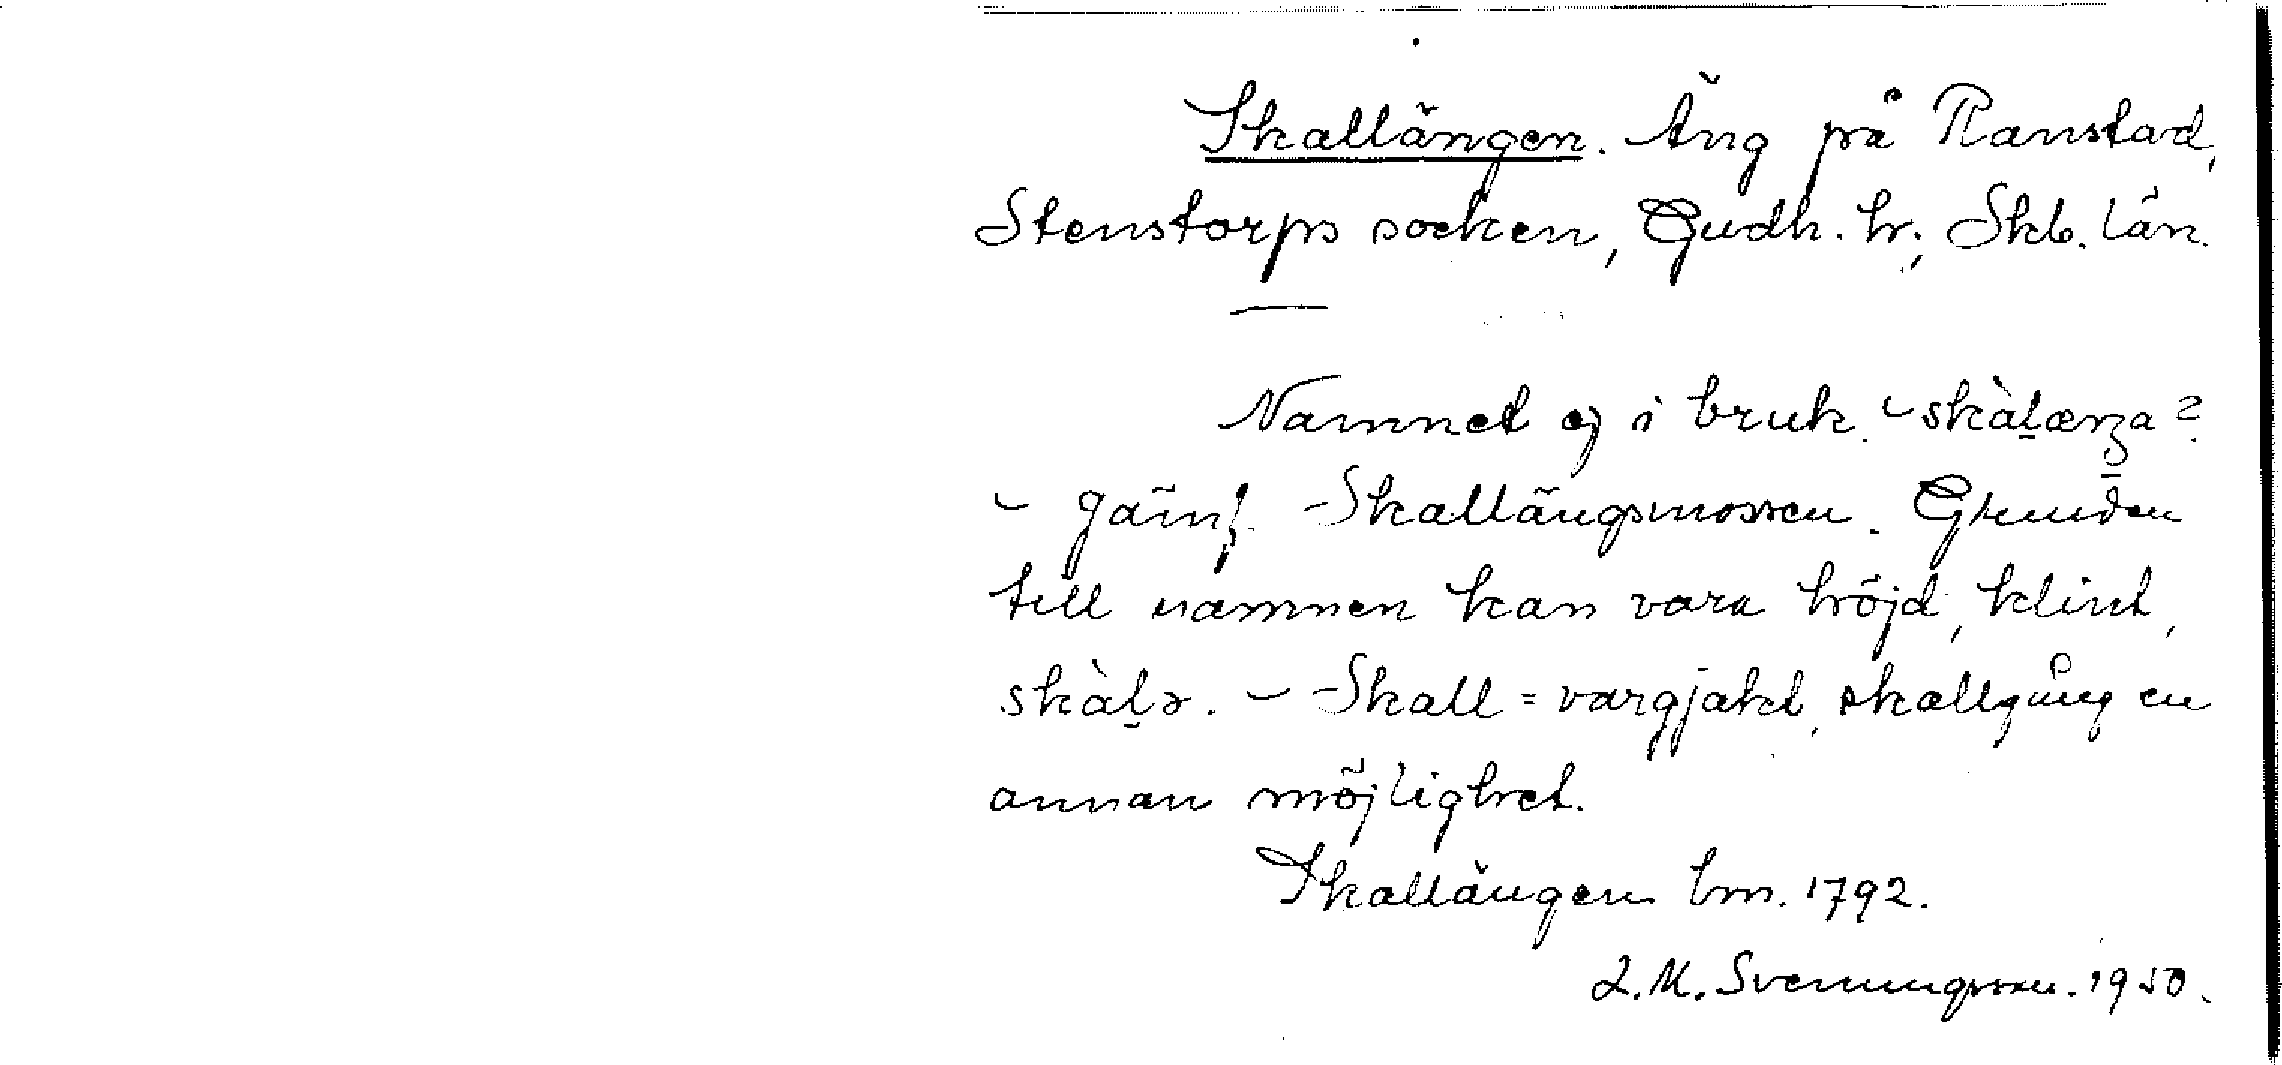 Skallängen. Äng på Ranstad,
Stenstorps socken, Gudh. hr., Skb. län.
—
Namnet ej i bruk. – skàlænga?
– Jämf. Skallängsmossen. Grunden
till namnen kan vara höjd, klint,
skàlə. – Skall = vargjakt, skallgång en
annan möjlighet.
Skallängen lm. 1792.
L.M. Svenungsson. 1950.